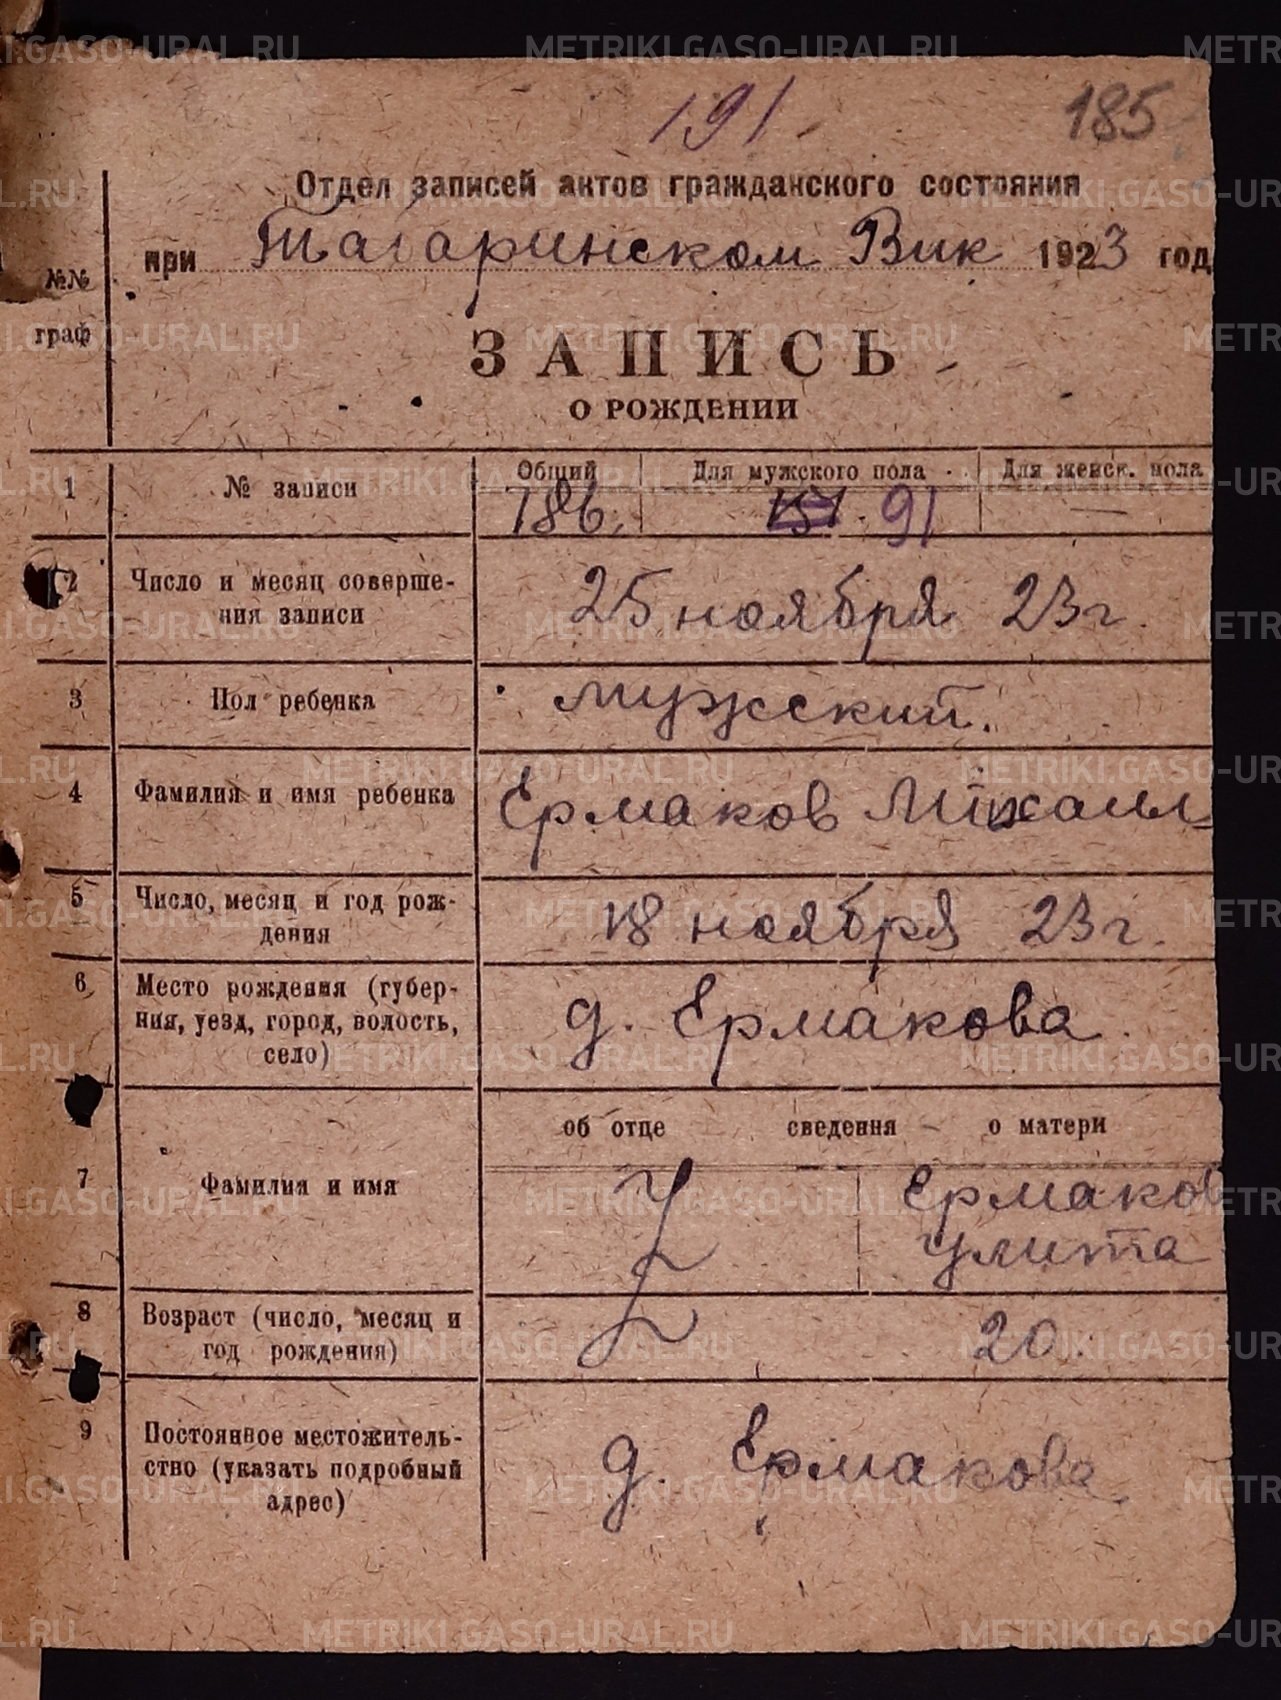 191.
185
Отдел записей актов гражданского состояния
при Табаринском Вик 1923 год
№№
граф
ЗАПИСЬ
О РОЖДЕНИИ
1 № записи Общий Для мужского пола Для женск. пола
186. 91 —
2 Число и месяц соверше-
ния записи
25 ноября 23 г.
3 Пол ребенка мужский.
4 Фамилия и имя ребенка Ермаков Михаил
5 Число, месяц и год рож-
дения
18 ноября 23 г.
6 Место рождения (губер-
ния, уезд, город, волость,
село)
д. Ермакова.
об отце сведения о матери
7 Фамилия и имя
Ермаков
Улита
8 Возраст (число, месяц и
год рождения)
20.
9 Постоянное местожитель-
ство (указать подробный
адрес)
д. Ермакова.
METRIKI.GASO-URAL.RU